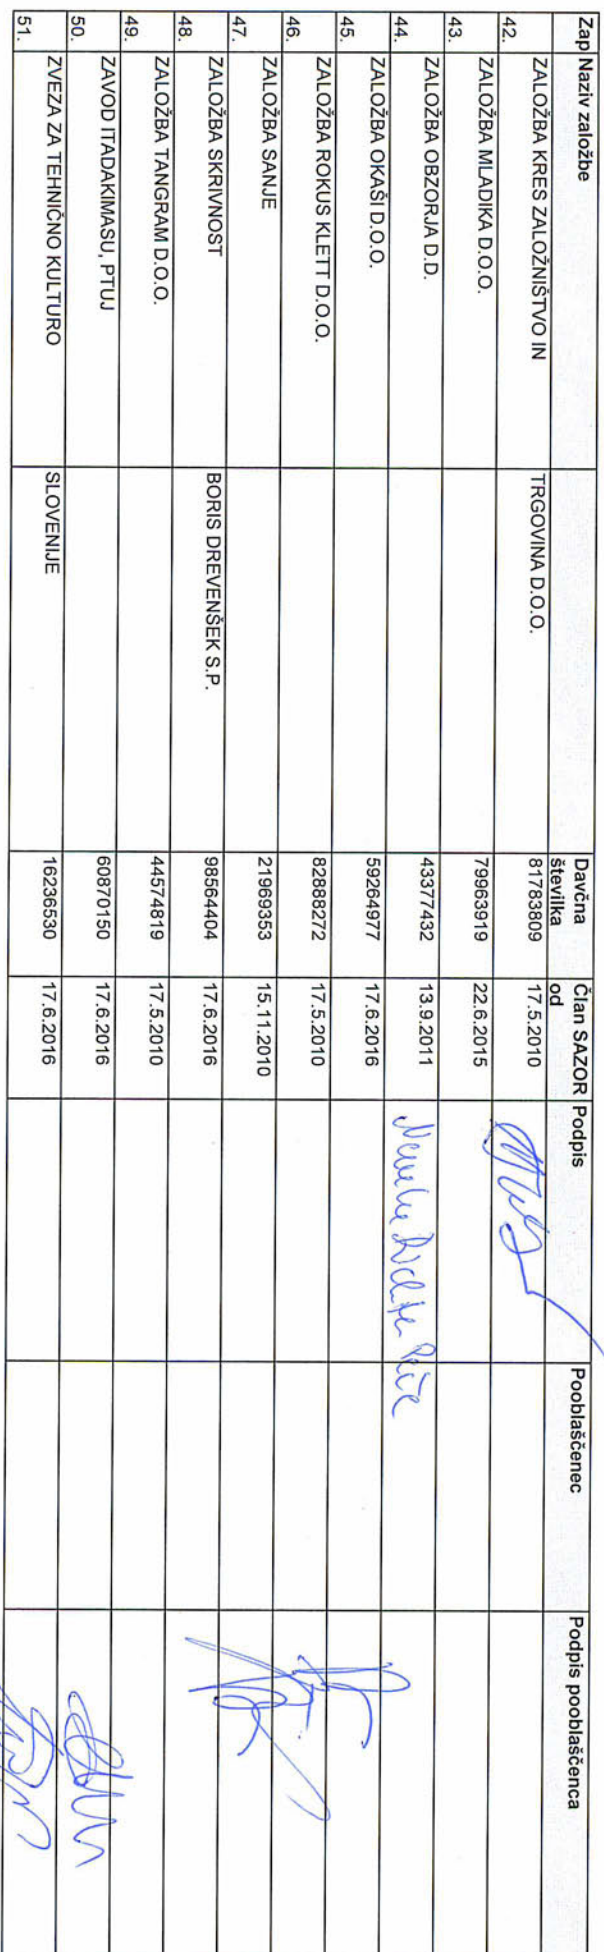 Zap Naziv založbe Davčna številka Član SAZOR od Podpis Pooblaščenec Podpis pooblaščenca
42. ZALOŽBA KRES ZALOŽNIŠTVO IN TRGOVINA D.O.O. 81783809 17.5.2010
43. ZALOŽBA MLADIKA D.O.O. 79963919 22.6.2015
44. ZALOŽBA OBZORJA D.D. 43377432 13.9.2011
45. ZALOŽBA OKAŠI D.O.O. 59264977 17.6.2016
46. ZALOŽBA ROKUS KLETT D.O.O. 82888272 17.5.2010
47. ZALOŽBA SANJE 21969353 15.11.2010
48. ZALOŽBA SKRIVNOST BORIS DREVENŠEK S.P. 98564404 17.6.2016
49. ZALOŽBA TANGRAM D.O.O. 44574819 17.5.2010
50. ZAVOD ITADAKIMASU, PTUJ 60870150 17.6.2016
51. ZVEZA ZA TEHNIČNO KULTURO SLOVENIJE 16236530 17.6.2016